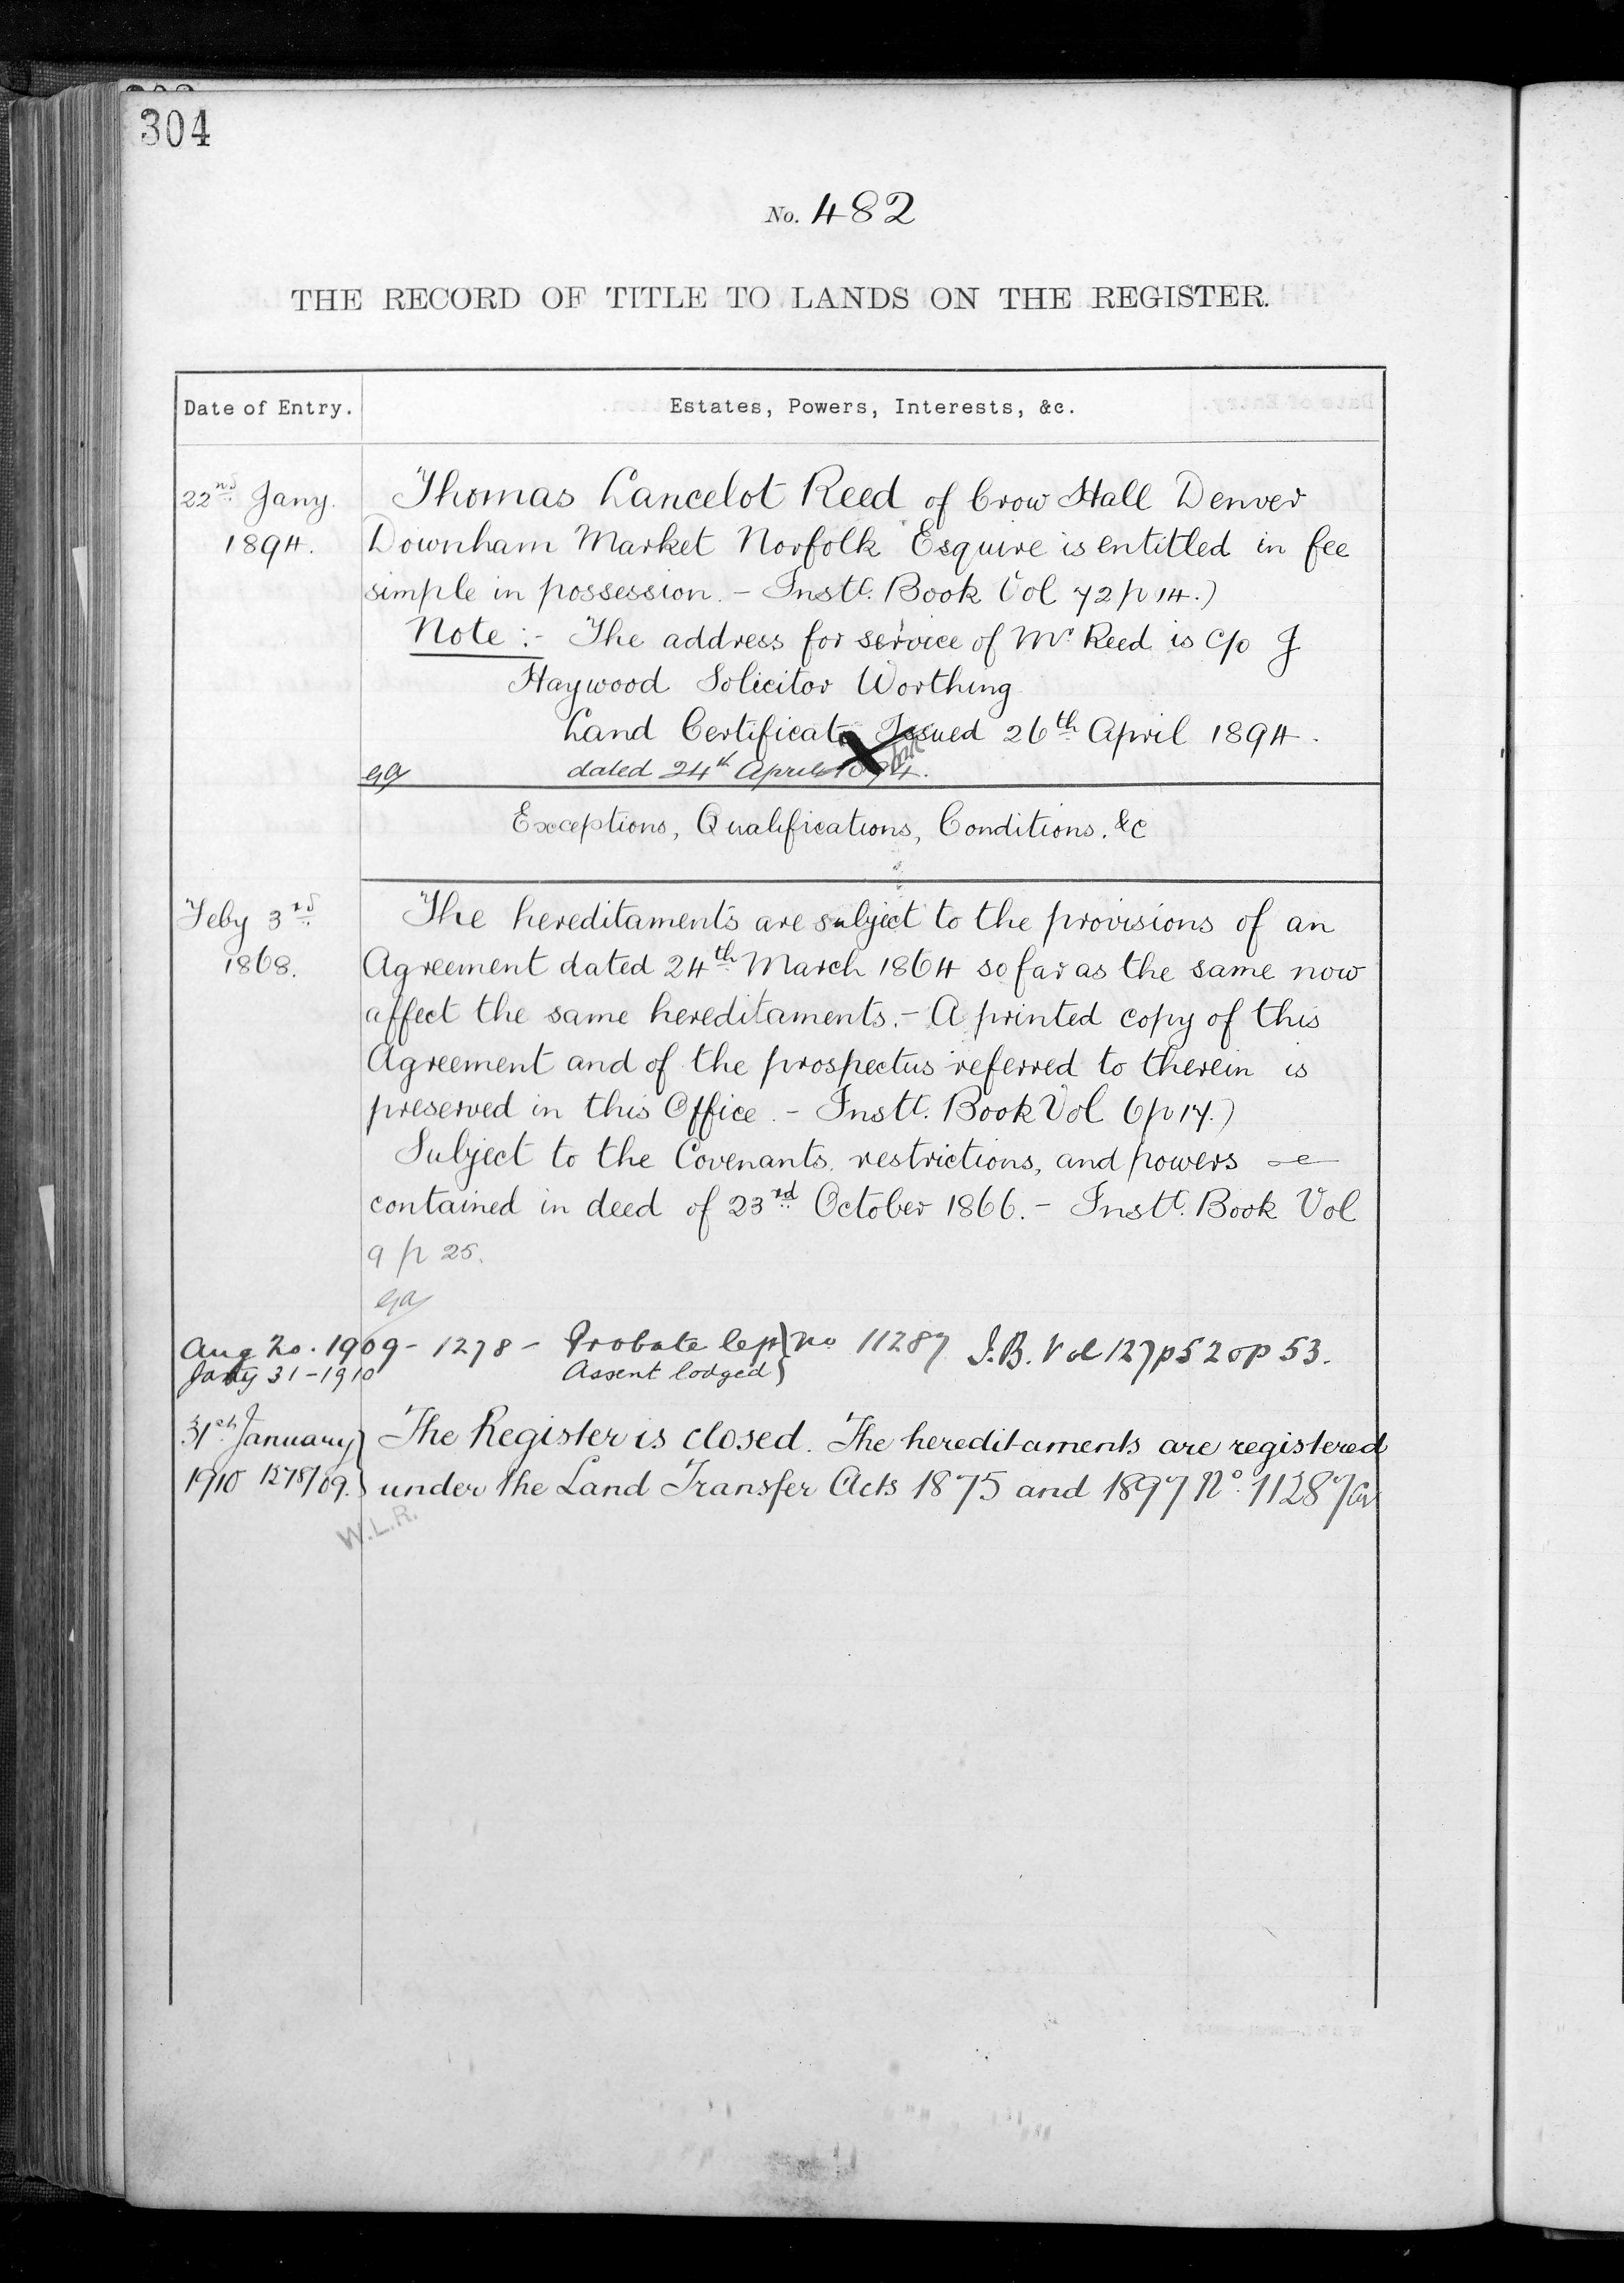 304
No. 482
THE RECORD OF TITLE TO LANDS ON THE REGISTER.
Date of Entry. Estates, Powers, Interests, &c.
22nd Jany. Thomas Lancelot Reed of Crow Hall Denver
1894. Downham Market Norfolk Esquire is entitled in fee
simple in possession. - Instt. Book Vol 72 p 14.)
Note :- The address for service of Mr Reed is c/o J
Haywood Solicitor Worthing
Land Certificate Issued 26th April 1894.
dated 24th April 1894.
Exceptions, Qualifications, Conditions, &c
Feby 3rd The hereditaments are subject to the provisions of an
1868. Agreement dated 24th March 1864 so far as the same now
affect the same hereditaments. - A printed copy of this
Agreement and of the prospectus referred to therein is
preserved in this Office. - Instt. Book Vol 6 p 17.)
Subject to the Covenants, restrictions, and powers
contained in deed of 23rd October 1866. - Instt. Book Vol
9 p 25.
Aug 20. 1909 - 1278 - Probate left } No 11287 I.B. Vol 127 p 52 & p 53.
Jany 31 - 1910 Assent lodged }
31st January } The Register is closed. The hereditaments are registered
1910 1278/09. } under the Land Transfer Acts 1875 and 1897 No. 11287
W.L.R.